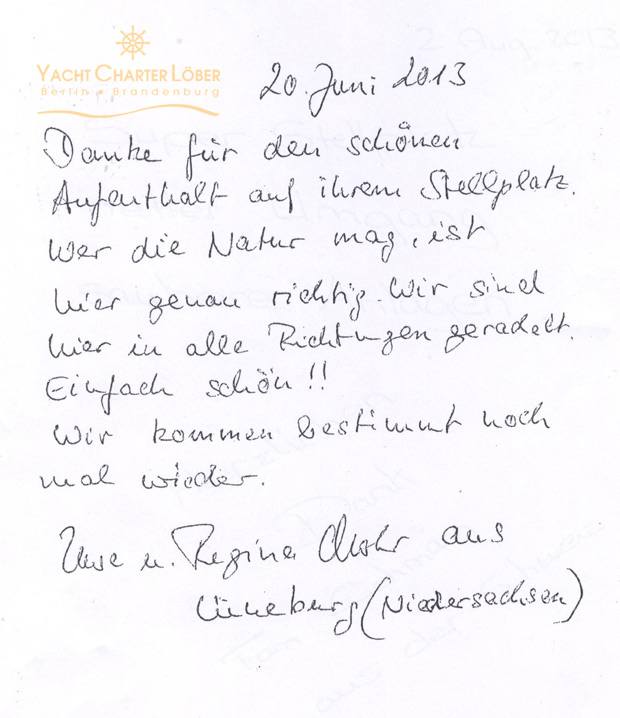 YACHT CHARTER LÖBER
Berlin • Brandenburg
2 Aug. 2013
20. Juni 2013
Danke für den schönen
Aufenthalt auf ihrem Stellplatz.
Wer die Natur mag, ist
hier genau richtig. Wir sind
hier in alle Richtungen geradelt.
Einfach schön!!
Wir kommen bestimmt noch
mal wieder.
Uwe u. Regina aus
Lüneburg (Niedersachsen)